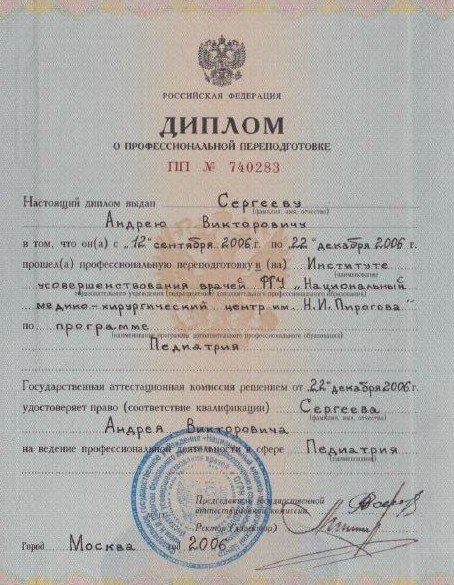 РОССИЙСКАЯ ФЕДЕРАЦИЯ
ДИПЛОМ
О ПРОФЕССИОНАЛЬНОЙ ПЕРЕПОДГОТОВКЕ
ПП № 740283
Настоящий диплом выдан Сергееву
(фамилия, имя, отчество)
Андрею Викторовичу
в том, что он(а) с „12" сентября 2006 г. по 22 "декабря 2006 г.
прошел(а) профессиональную переподготовку в (на) Институте
(наименование
усовершенствования врачей ФГУ „Национальный
образовательного учреждения (подразделения) дополнительного профессионального образования)
медико-хирургический центр им. Н.И. Пирогова"
по программе
(наименование программы дополнительного профессионального образования)
Педиатрия
Государственная аттестационная комиссия решением от 22 "декабря 2006 г.
удостоверяет право (соответствие квалификации) Сергеева
(фамилия, имя, отчество)
Андрея Викторовича
на ведение профессиональной деятельности в сфере Педиатрия
(наименование)
Председатель государственной
аттестационной комиссии
Ректор (директор)
Город Москва год 2006